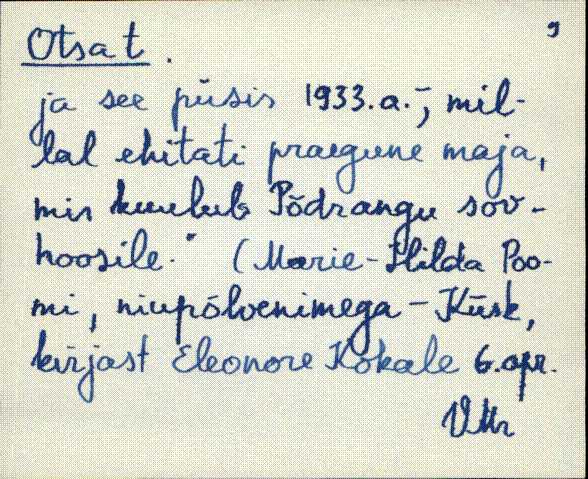 9
Otsat.
ja see püsis 1933.a.-, mil-
lal ehitati praegune maja,
mis kuulub Põdrangu sov-
hoosile." (Marie-Hilda Poo-
mi, niupõlvenimega - Küsk,
kirjast Eleonore Kokale 6.apr.